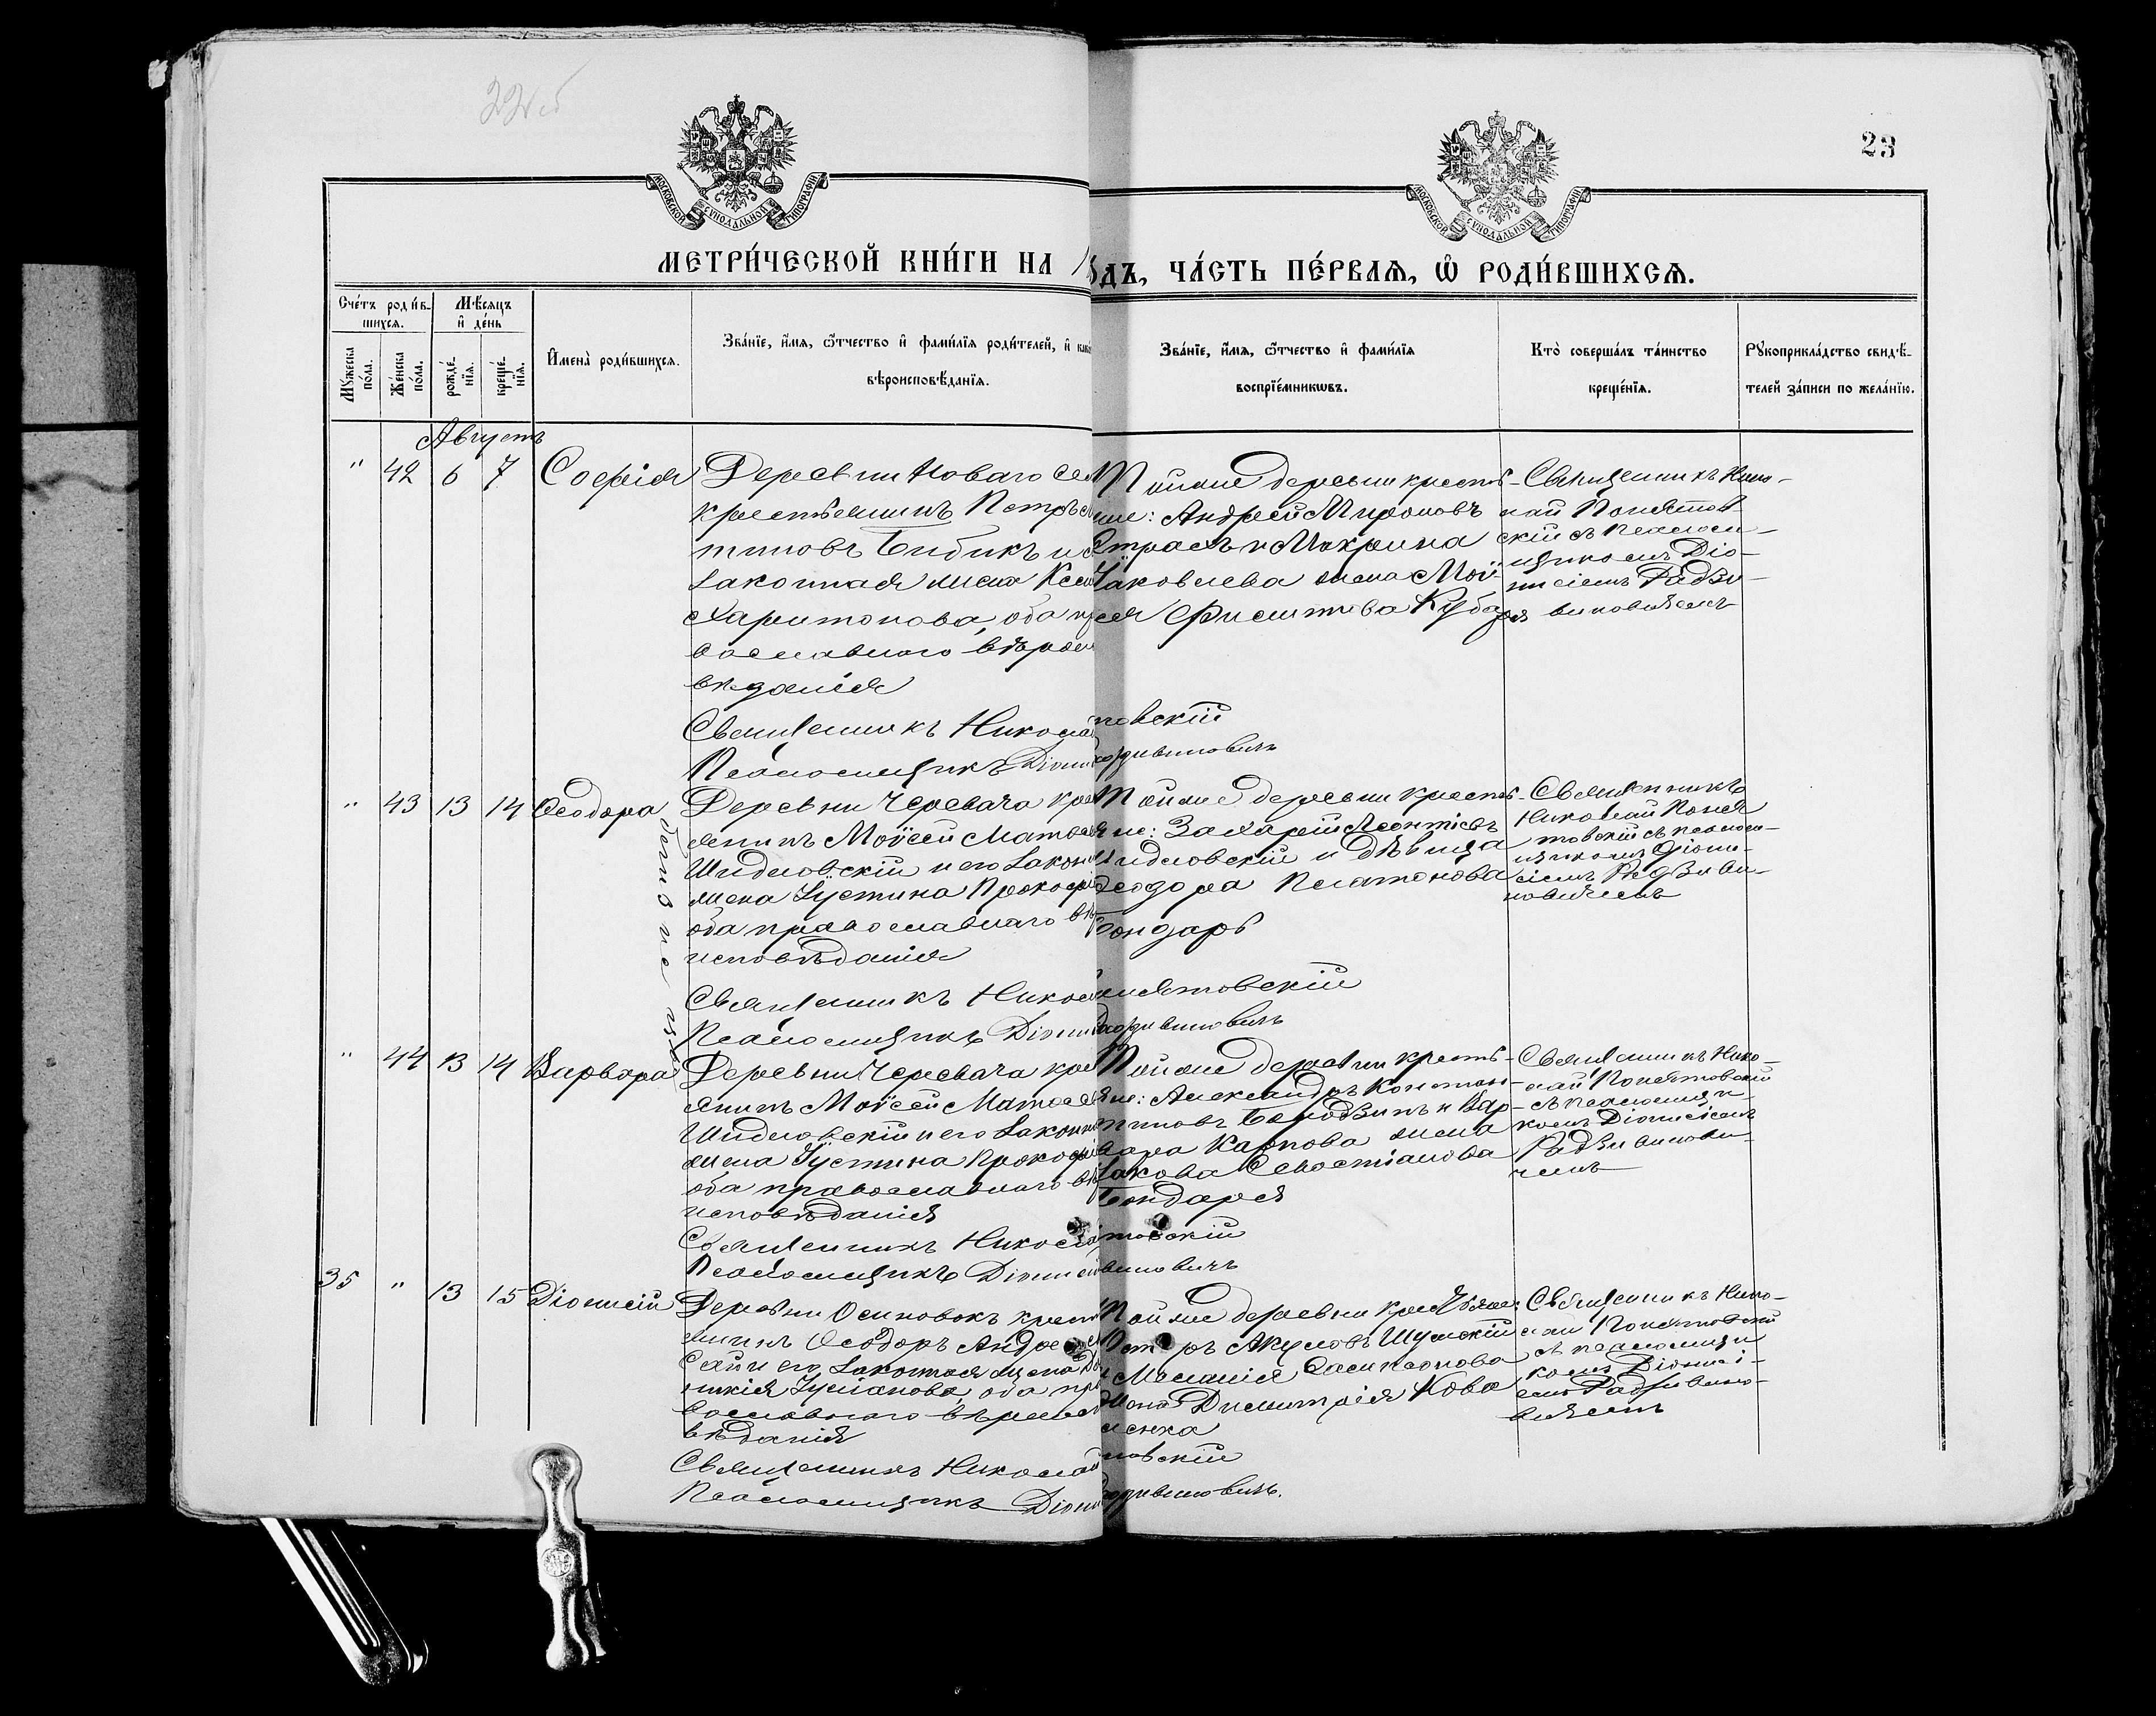 22об
23
МОСКОВСКОЙ СѴНОДАЛЬНОЙ ТИПОГРАФІИ
МОСКОВСКОЙ СѴНОДАЛЬНОЙ ТИПОГРАФІИ
МЕТРИ́ЧЕСКОЙ КНИ́ГИ НА 1
о́дъ, ЧА́СТЬ ПЕ́РВАЯ, Ѡ҆ РОДИ́ВШИХСЯ.
Сче́тъ роди́в-
шихся.
Мѣсяцъ
и҆ де́нь
Мꙋ́жеска по́ла.
Же́нска по́ла.
рожде́-нїя.
креще́-нїя.
И҆мена̀ роди́вшихся.
Зва́нїе, и҆́мя, ѻ҆́тчество и҆ фами́лїя роди́телей, и҆ как
вѣроисповѣ́данїя.
Зва́нїе, и҆́мя, ѻ҆́тчество и҆ фами́лїя
воспрїе́мникѡвъ.
Кто̀ соверша́лъ та́инство
креще́нїя.
Рꙋкоприкла́дство свидѣ́-
телей за́писи по жела́нїю.
Августъ
" 42 6 7 Софія
Деревни Новаго Сел
крестьянинъ Петръ
тиновъ Бибикъ и
законная жена Ксен
Харитонова, оба пр
вославнаго вѣроис
вѣданія
Священникъ Никола
Псаломщикъ Діони
Тойже деревни кресть-
яне: Андрей Мироновъ
Страхъ и Макрина
Яковлева жена Мой-
сея Филиппова Кубаря
Священникъ Нико-
лай Понятов-
скій съ псалом-
щикомъ Діо-
нисіемъ Радзи-
виновичемъ
товскій
дзивиновичъ
" 43 13 14 Ѳеодора
Деревни Черевача крес
янинъ Моѵсей Матѳе
Шидловскій и его закон
жена Іустина Прокофі
оба православнаго вѣ
исповѣданія
Священникъ Никол
Псаломщикъ Діони
близнецы
Тойже деревни кресть-
яне: Захарій Леонтіевъ
Шидловскій и дѣвица
Ѳеодора Платонова
Бондарь
Священникъ
Николай Поня
товскій съ псалом-
щикомъ Діони-
сіемъ Радзиви-
новичемъ
нятовскій
дзивиновичъ
" 44 13 14 Варвара
Деревни Черевача крес
янинъ Моѵсей Матѳее
Шидловскій и его законн
жена Іустина Прокофі
оба православнаго вѣ
исповѣданія
Священникъ Никола
Псаломщикъ Діонисі
Тойже деревни кресть-
яне: Александръ Констан-
тиновъ Бородзинъ и Вар-
вара Карпова жена
Іакова Севостіанова
Бондаря
Священникъ Нико-
лай Понятовскій
съ псаломщи-
комъ Діонисіемъ
Радзивинови-
чемъ
товскій
виновичъ
35 " 13 15 Діонисій
Деревни Осиновокъ крест
янинъ Ѳеодоръ Андре
его законная жена
Іуліанова, оба пра
вославнаго вѣроиспо
вѣданія
Священникъ Николай
Псаломщикъ Діони
Тойже деревни крестьяне:
Петръ Акуловъ Шумскій
и Меланія
жена Димитрія Кова
ленка
Священникъ Нико-
лай Понятовскій
съ псаломщи
комъ Діонисі-
емъ Радзивино-
вичемъ
товскій
дзивиновичъ.